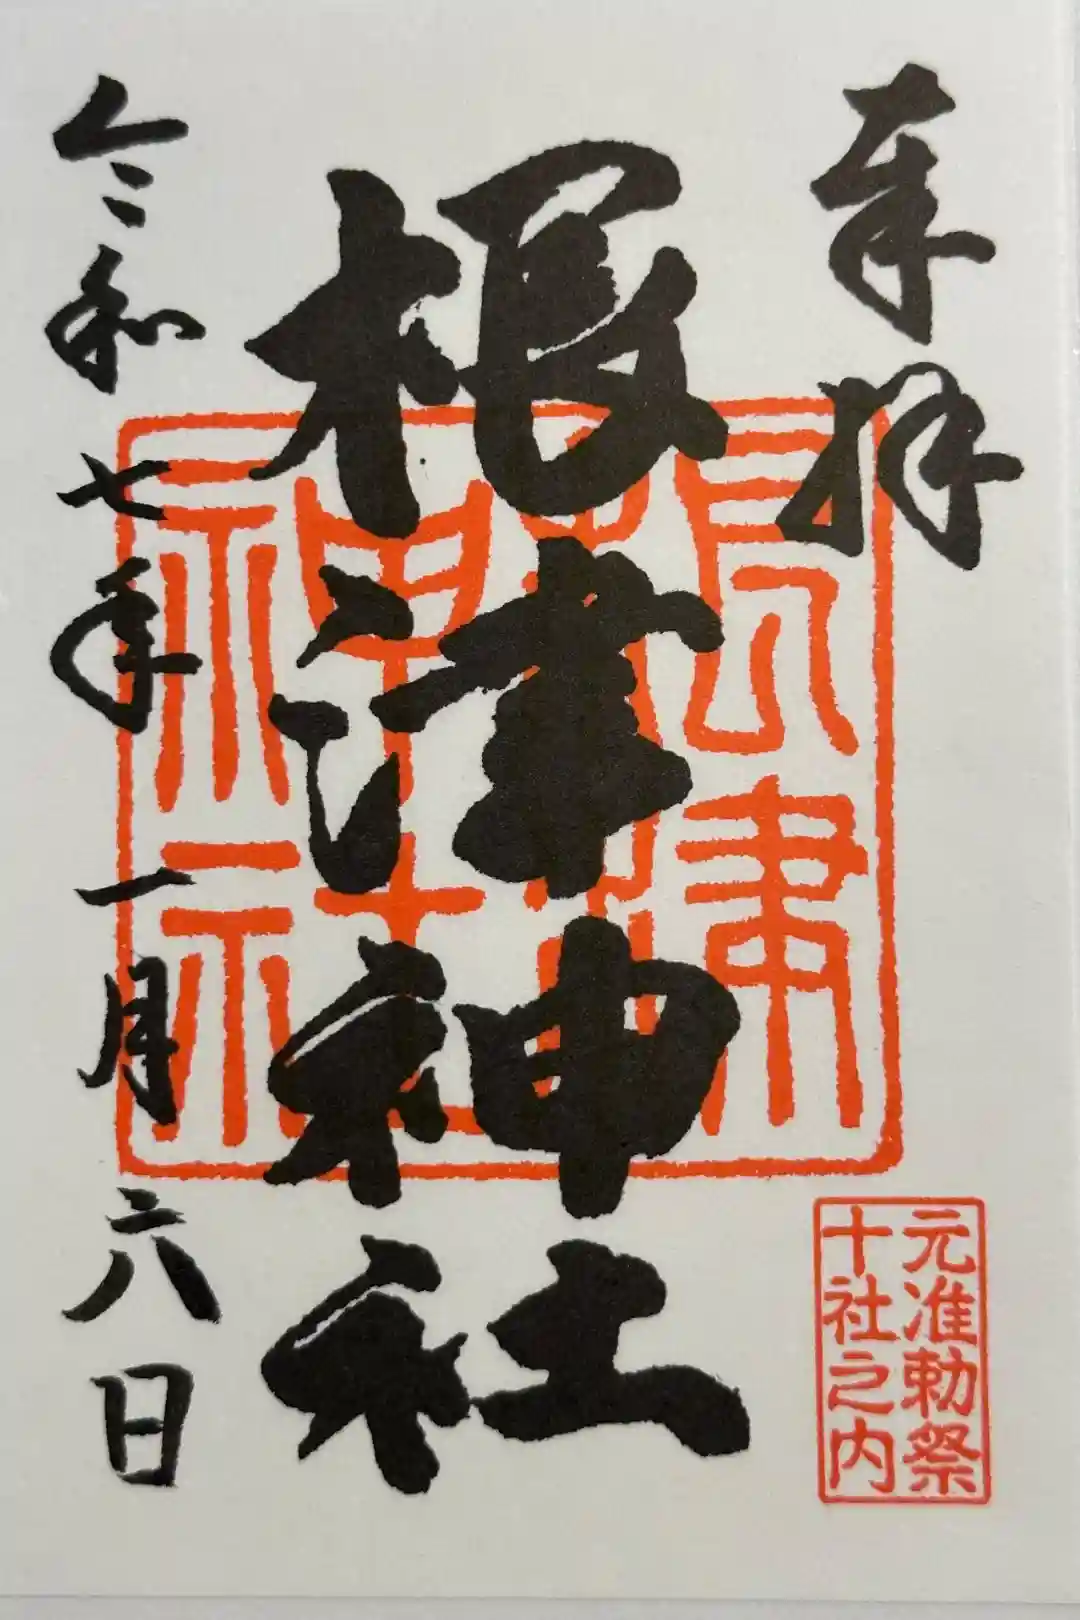 奉拝
根津神社
令和七年一月六日
根津
神社
元准勅祭
十社之内